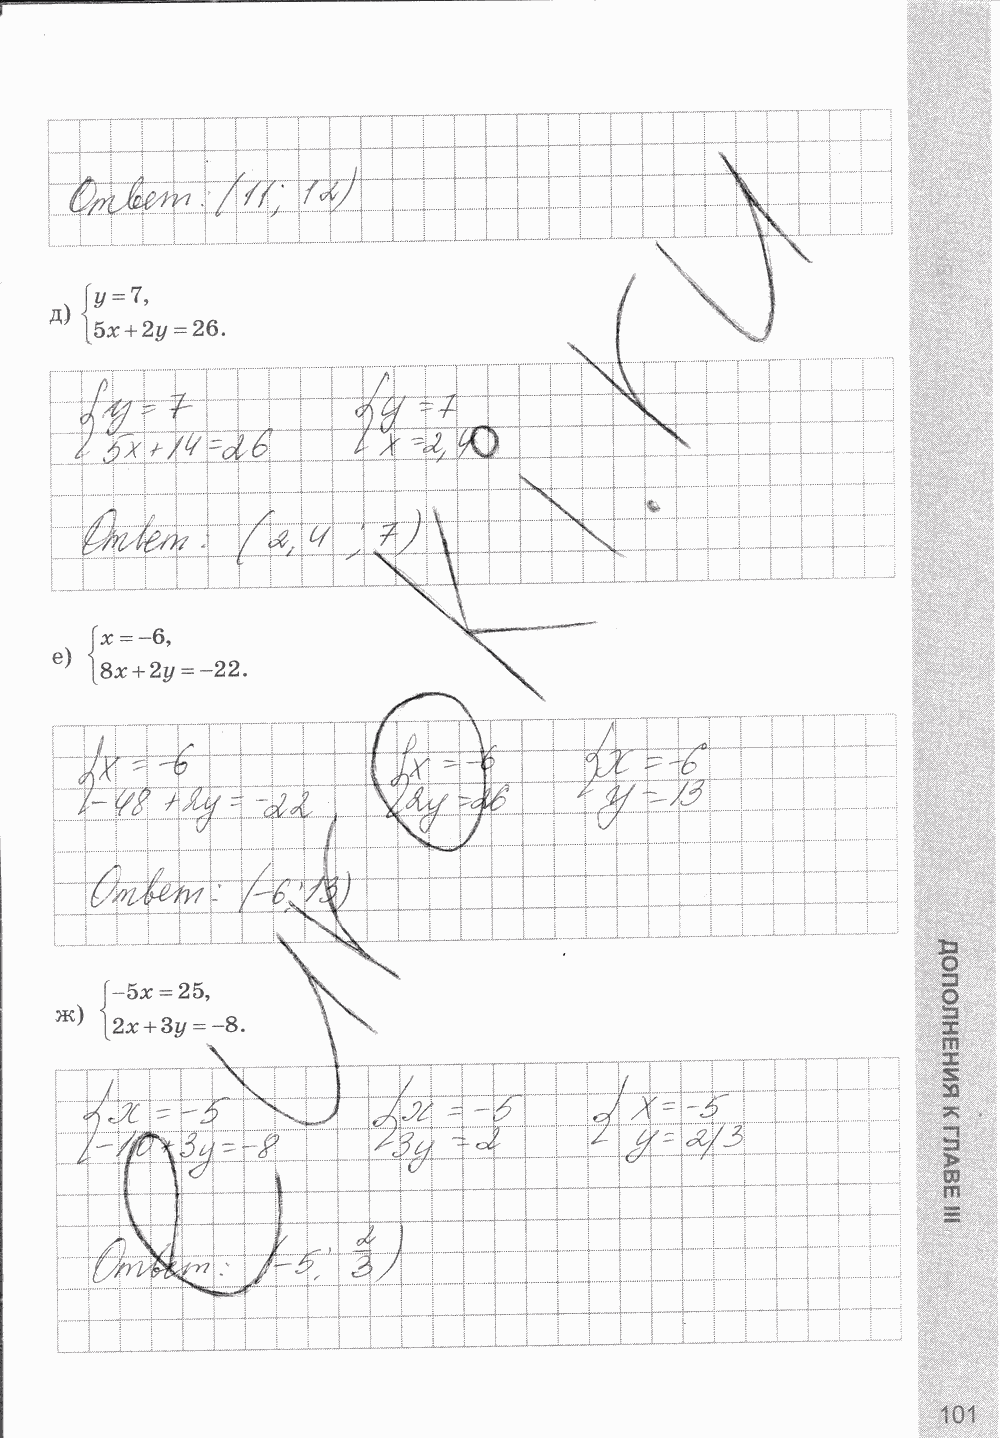 Ответ: (11; 12)
д) { y = 7,
5x + 2y = 26.
{ y = 7 { y = 7
5x + 14 = 26 x = 2,4
Ответ: (2,4; 7)
е) { x = –6,
8x + 2y = –22.
{ x = -6 { x = -6 { x = -6
-48 + 2y = -22 2y = 26 y = 13
Ответ: (-6; 13)
ж) { –5x = 25,
2x + 3y = –8.
{ x = -5 { x = -5 { x = -5
-10 + 3y = -8 3y = 2 y = 2/3
Ответ: (-5; 2/3)
ДОПОЛНЕНИЯ К ГЛАВЕ III
101